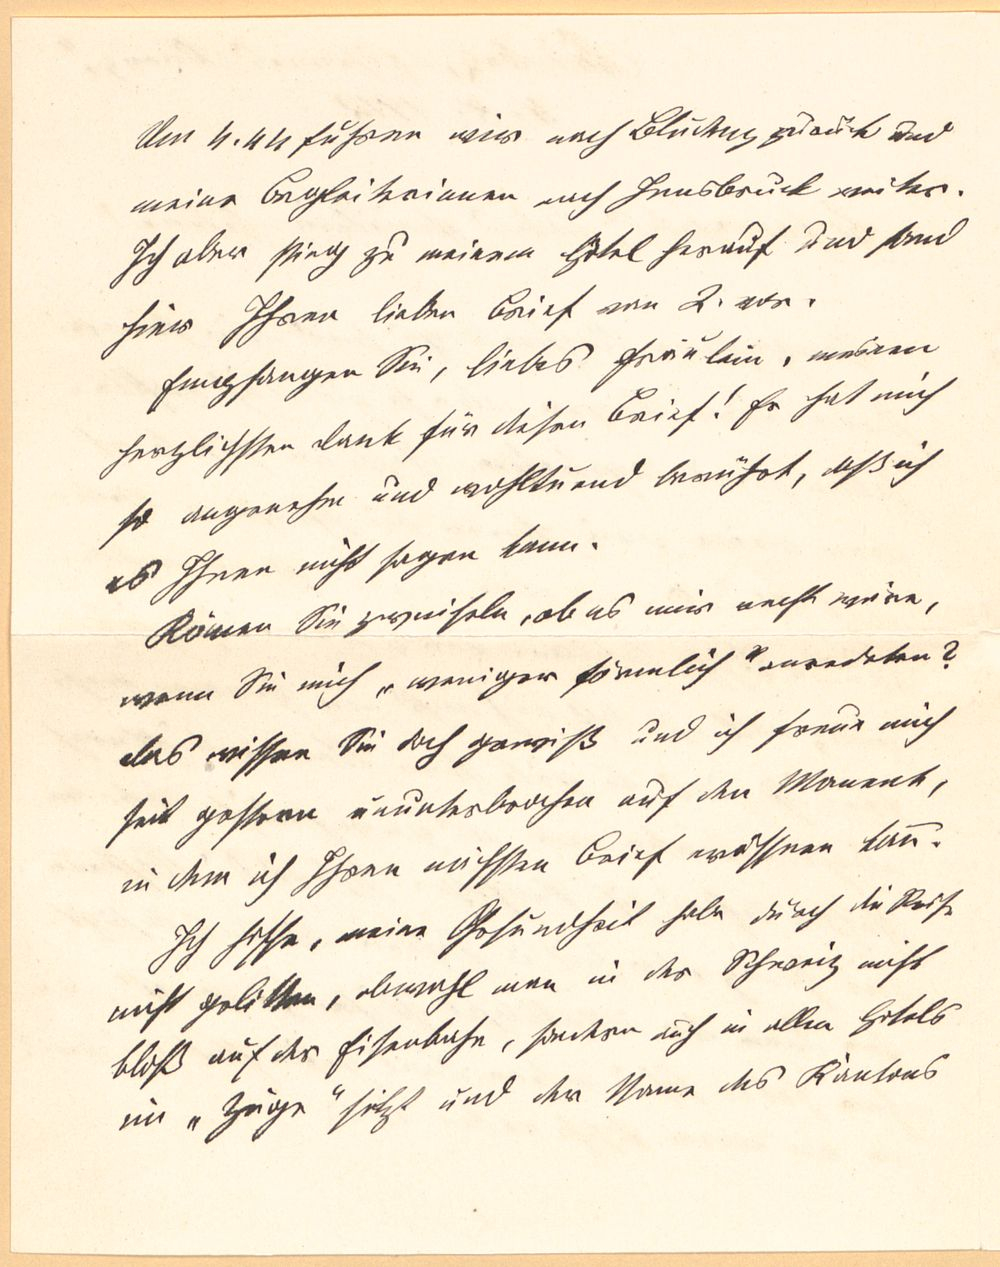 Um 4.44 fuhren wir nach Bludenz zurück und
meine Begleiterinnen nach Innsbruck weiter.
Ich aber stieg zu meinem Hôtel herauf und fand
hier Ihren lieben Brief vom 2. vor.
Empfangen Sie, liebes Fräulein, meinen
herzlichsten Dank für diesen Brief! Er hat mich
so angenehm und wohltuend berührt, daß ich
es Ihnen nicht sagen kann.
Können Sie zweifeln, ob es mir recht wäre,
wenn Sie mich „weniger förmlich" anredeten?
Das wissen Sie doch gewiß und ich freue mich
seit gestern ununterbrochen auf den Moment,
in dem ich Ihren nächsten Brief eröffnen kann.
Ich hoffe, meine Gesundheit habe durch die Reise
nicht gelitten, obwohl man in der Schweiz nicht
bloß auf der Eisenbahn, sondern auch in allen Hotels
im „Zuge" sitzt und der Name des Kantons